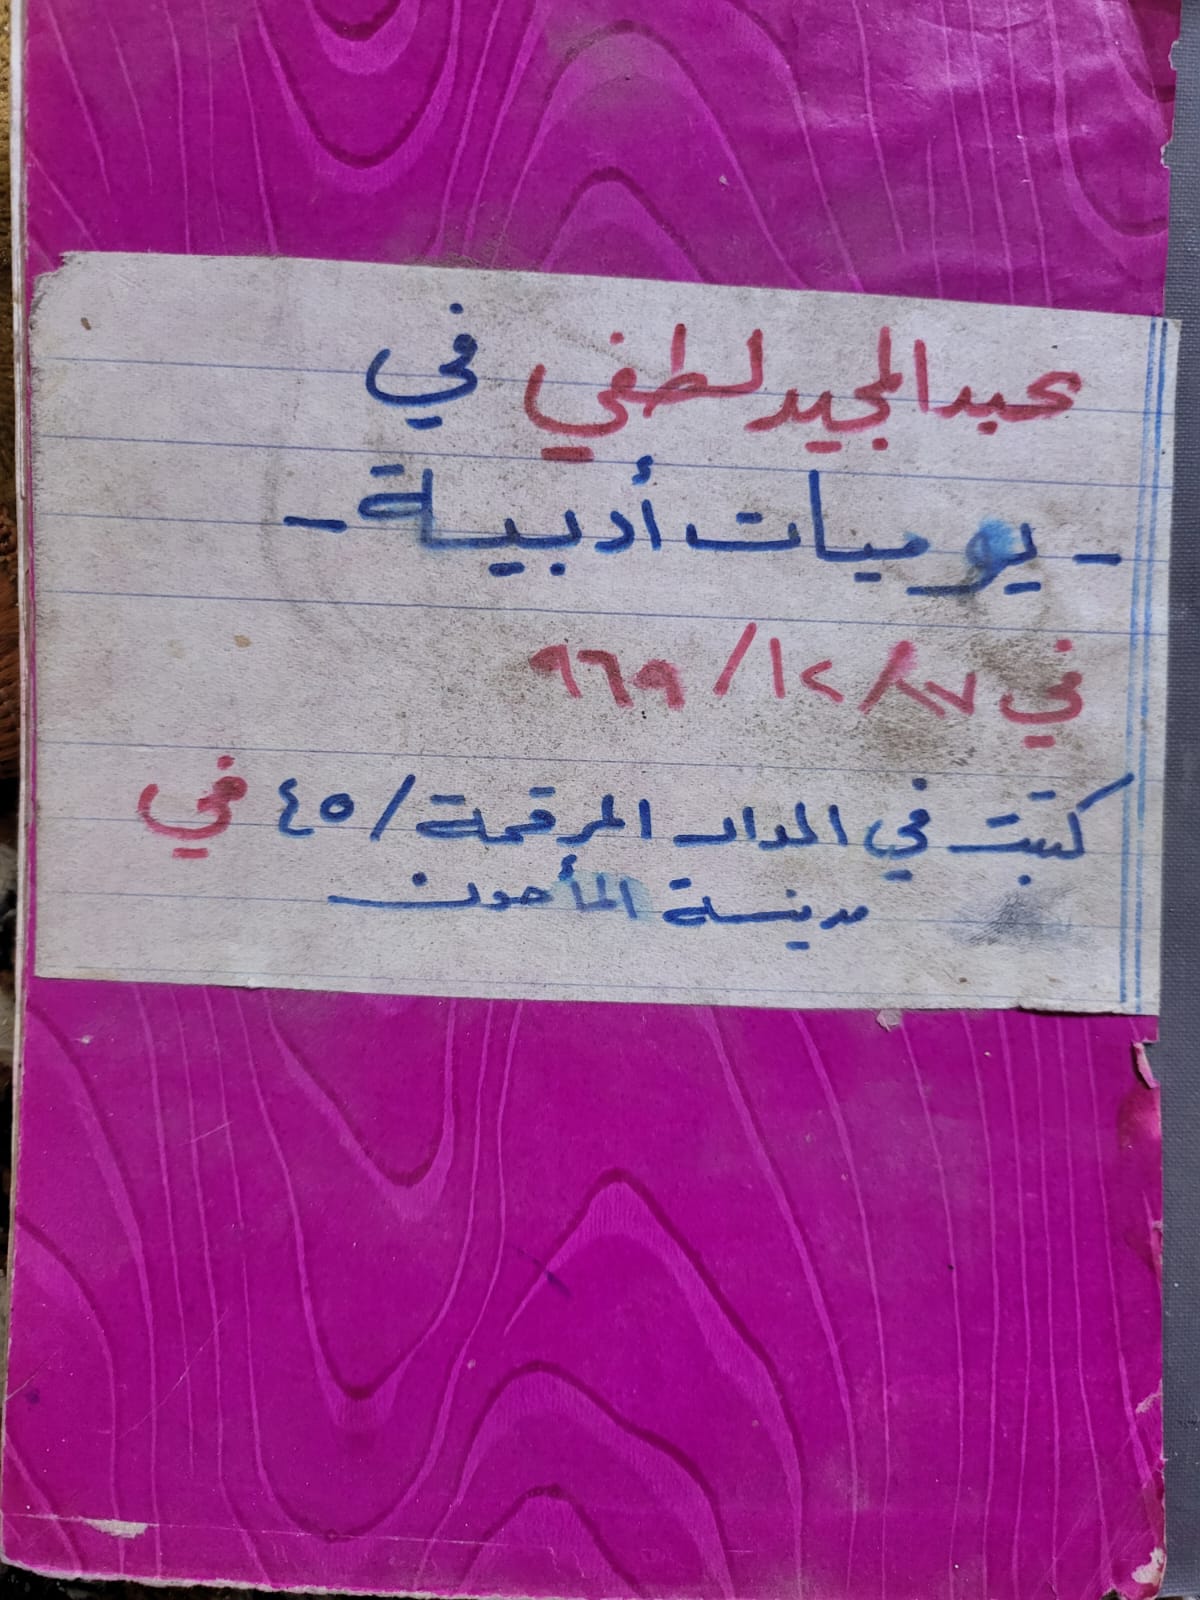 عبدالمجيد لطفي في
- يوميات أدبية -
في ٢٧/ ١٢/ ٩٦٩
كتبت في الدار المرقمة / ٤٥ في
مدينـة المأمون